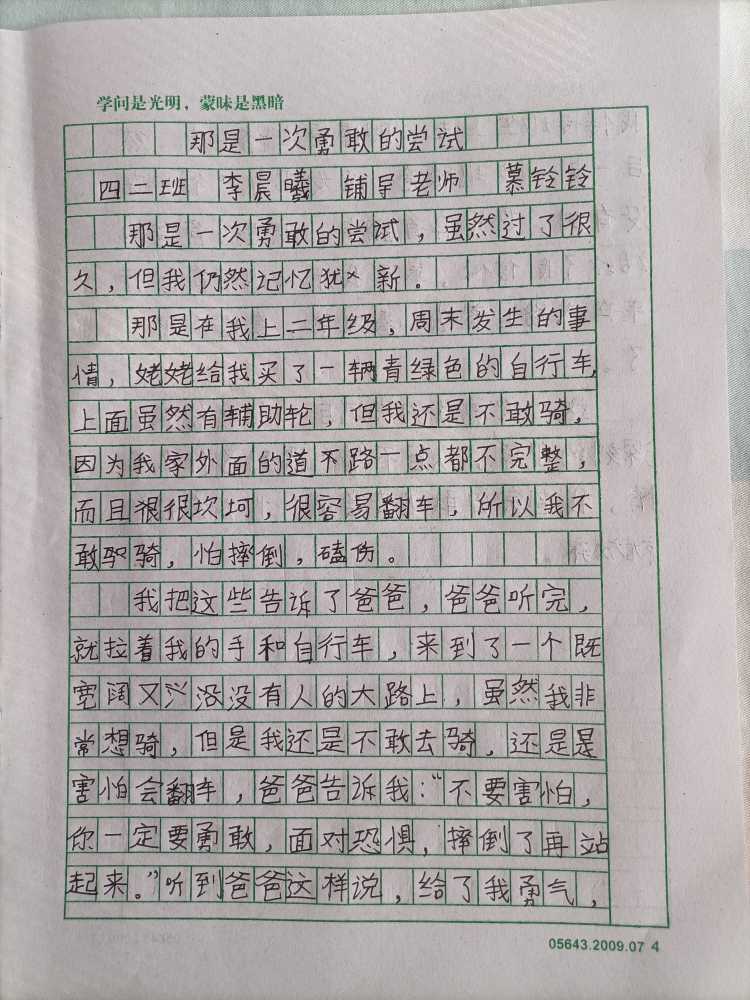 学问是光明，蒙昧是黑暗
那是一次勇敢的尝试
四二班 李晨曦 辅导老师 慕铃铃
那是一次勇敢的尝试，虽然过了很
久，但我仍然记忆犹新。
那是在我上二年级，周末发生的事
情，姥姥给我买了一辆青绿色的自行车，
上面虽然有辅助轮，但我还是不敢骑，
因为我家外面的道不路一点都不完整，
而且很很坎坷，很容易翻车，所以我不
敢骑，怕摔倒，磕伤。
我把这些告诉了爸爸，爸爸听完，
就拉着我的手和自行车，来到了一个既
宽阔又没没有人的大路上，虽然我非
常想骑，但是我还是不敢去骑，还是是
害怕会翻车，爸爸告诉我：“不要害怕，
你一定要勇敢，面对恐惧，摔倒了再站
起来。”听到爸爸这样说，给了我勇气，
05643.2009.07 4